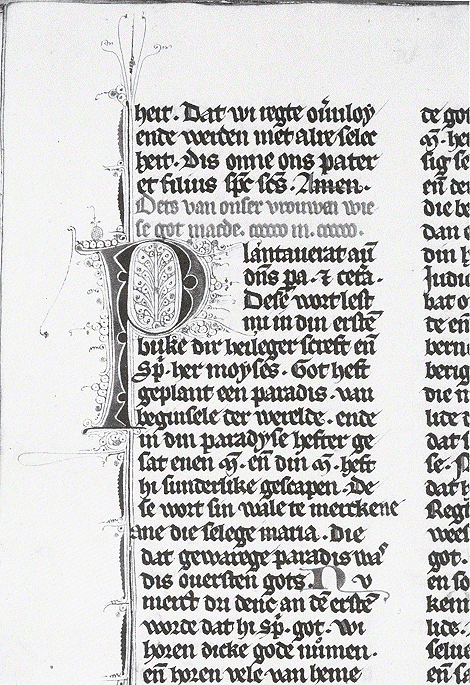 heit. Dat wi regte oūmloy
ende werden met alre selec
heit. Dis onne ons pater
et filius sp̄c sc̄s. Amen.
Dets van onser vrouwen wie
se got maede. ccccc in. ccccc.
Plantauerat aūt
dn̄s pa. ⁊ cet̄a.
Dese wort lest
mi in din ersten̄
buke dir heileger screft en̄
Sp̄. her moyses. Got heft
geplant een paradis. van
beginsele der werelde. ende
in din paradyse hefter ge
sat enen m̄. en̄ din m̄. heft
hi sunderlike gescapen. De
se wort sin wale te merckene
ane die selege maria. Die
dat gewarege paradis was
dis ouersten gots. Nv
merct dri denc an dē erstē
worde dat hi sp̄. got. Wi
horen dicke gode nūmen.
en̄ horen vele van heme
de got
m̄. he
sig se
en̄ de
die be
dan e
din h
Judic
bat o
te en̄
bern
berig
die n
lide
dat
se.
dat
Regt
weel
got.
en so
kem
lide.
selue
en̄ s